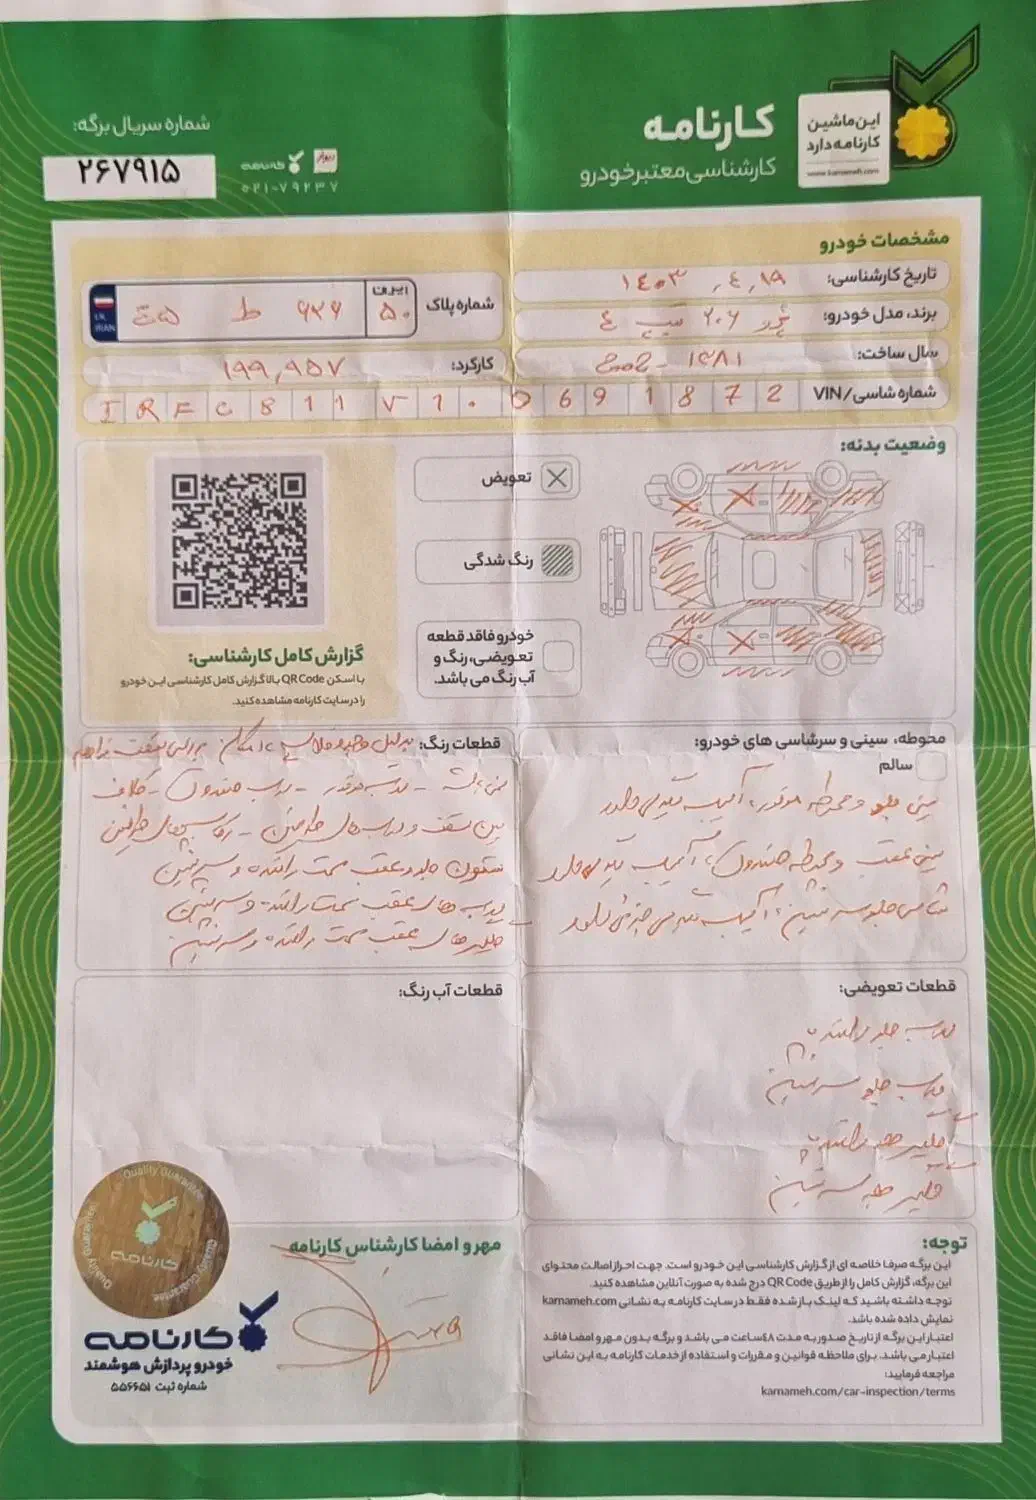 این ماشین
کارنامه دارد
www.karnameh.com
کارنامه
کارشناسی معتبر خودرو
دیوار کارنامه
۰۲۱-۷۹۲۳۷
شماره سریال برگه:
۲۶۷۹۱۵
مشخصات خودرو
تاریخ کارشناسی: ۱۴۰۳ , ۴ , ۱۹
برند، مدل خودرو: پژو ۲۰۶ تیپ ۴
سال ساخت: ۱۳۸۱ -
شماره پلاک
ایران
۵۰
۶۳۶ ط
I.R.
IRAN
کارکرد: ۱۹۹,۹۵۷
شماره شاسی/VIN
I R F C 8 1 1 V 1 0 0 6 9 1 8 7 2
وضعیت بدنه:
تعویض
رنگ شدگی
خودرو فاقد قطعه
تعویضی، رنگ و
آب رنگ می باشد.
گزارش کامل کارشناسی:
با اسکن QR Code بالا گزارش کامل کارشناسی این خودرو
را در سایت کارنامه مشاهده کنید.
محوطه، سینی و سرشاسی های خودرو:
سالم
سینی جلو و محوطه موتور، آسیب دارد
سینی عقب و محوطه صندوق، آسیب دارد
شاسی جلو سرنشین، آسیب جزئی دارد
قطعات رنگ: بدلیل امکان بررسی سقف فراهم
درب موتور - درب صندوق - کلاف
بین سقف و دربهای طرفین - رکاب طرفین
ستون جلو و عقب سمت راننده و سرنشین
درب های عقب سمت راننده و سرنشین
گلگیرهای عقب سمت راننده و سرنشین
قطعات تعویضی:
درب جلو راننده
درب جلو سرنشین
گلگیر جلو راننده
گلگیر جلو سرنشین
قطعات آب رنگ:
توجه:
این برگه صرفا خلاصه ای از گزارش کارشناسی این خودرو است. جهت احراز اصالت محتوای
این برگه، گزارش کامل را از طریق QR Code درج شده به صورت آنلاین مشاهده کنید.
توجه داشته باشید که لینک باز شده فقط در سایت کارنامه به نشانی karnameh.com
نمایش داده شده باشد.
اعتبار این برگه از تاریخ صدور به مدت ۴۸ ساعت می باشد و برگه بدون مهر و امضا فاقد
اعتبار می باشد. برای ملاحظه قوانین و مقررات و استفاده از خدمات کارنامه به این نشانی
مراجعه فرمایید:
karnameh.com/car-inspection/terms
مهر و امضا کارشناس کارنامه
Quality Guarantee
کارنامه
Quality Guarantee
کارنامه
خودرو پردازش هوشمند
شماره ثبت ۵۵۶۶۵۱